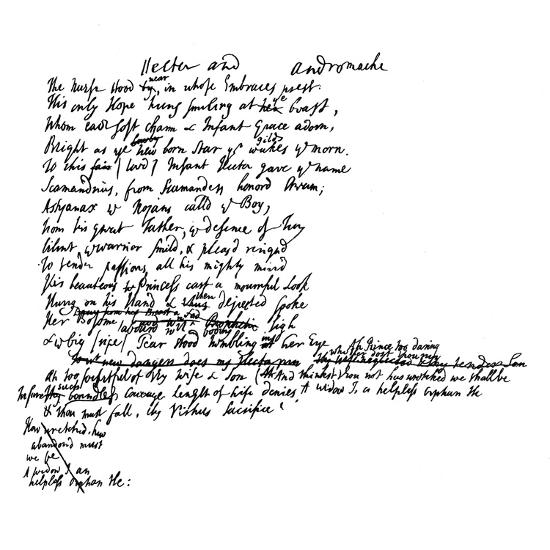 Hector and Andromache
The Nurse stood near, in whose Embraces prest
His only Hope hung smiling at her breast,
Whom each soft charm & Infant Grace adorn,
Bright as ye new born star yt gilds ye morn.
To this fair Infant Hector gave ye name
Scamandrius, from Scamanders honord stream;
Astyanax ye Trojans calld ye Boy,
From his great Father, ye defence of Troy
Silent ye warrior smild, & pleasd resignd
To tender passions all his mighty mind
His beauteous Princess cast a mournful look
Hung on his Hand & then dejected spoke
Her Bosome labord with a boding sigh
& ye big Tear stood trembling at her Eye
Too daring Prince
Ah too forgetful of thy wife & Son
And thinkst thou not how wretched we shall be
courage Length of Life denies A widow I, a helpless orphan He
& thou must fall, thy Virtues sacrifice
How wretched, how
abandond must
we be
A widow I, an
helpless Orphan He: